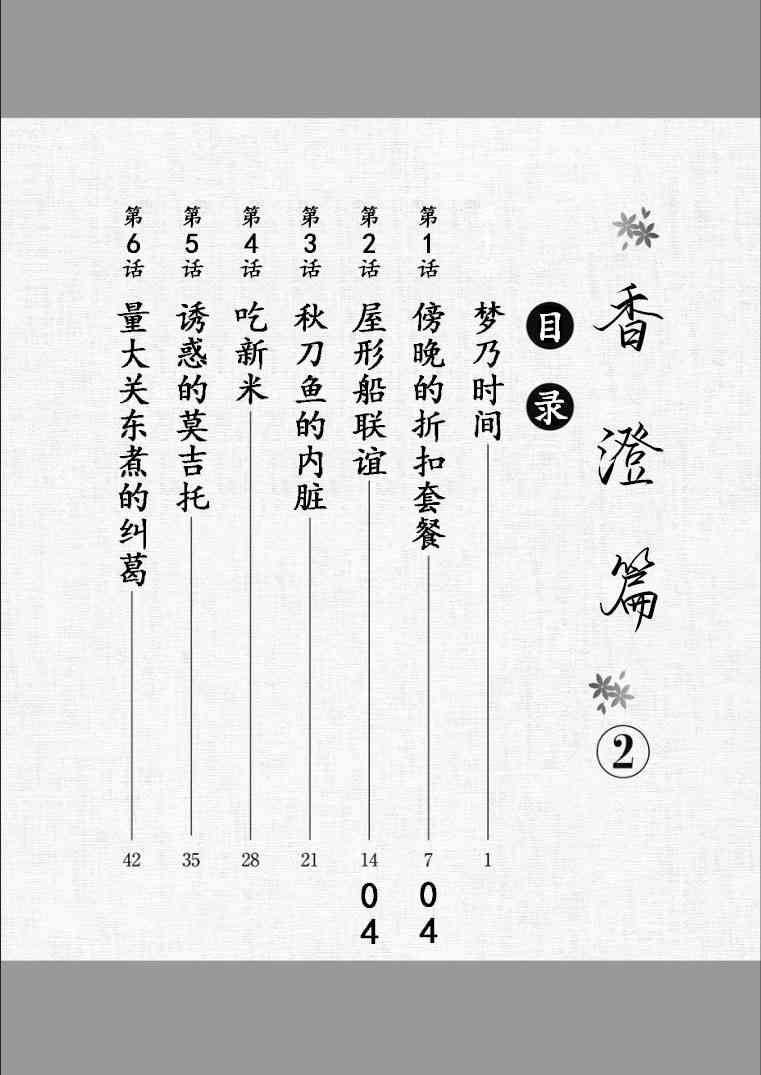 香澄篇②
目录
梦乃时间 1
第1话 傍晚的折扣套餐 7 04
第2话 屋形船联谊 14 04
第3话 秋刀鱼的内脏 21
第4话 吃新米 28
第5话 诱惑的莫吉托 35
第6话 量大关东煮的纠葛 42